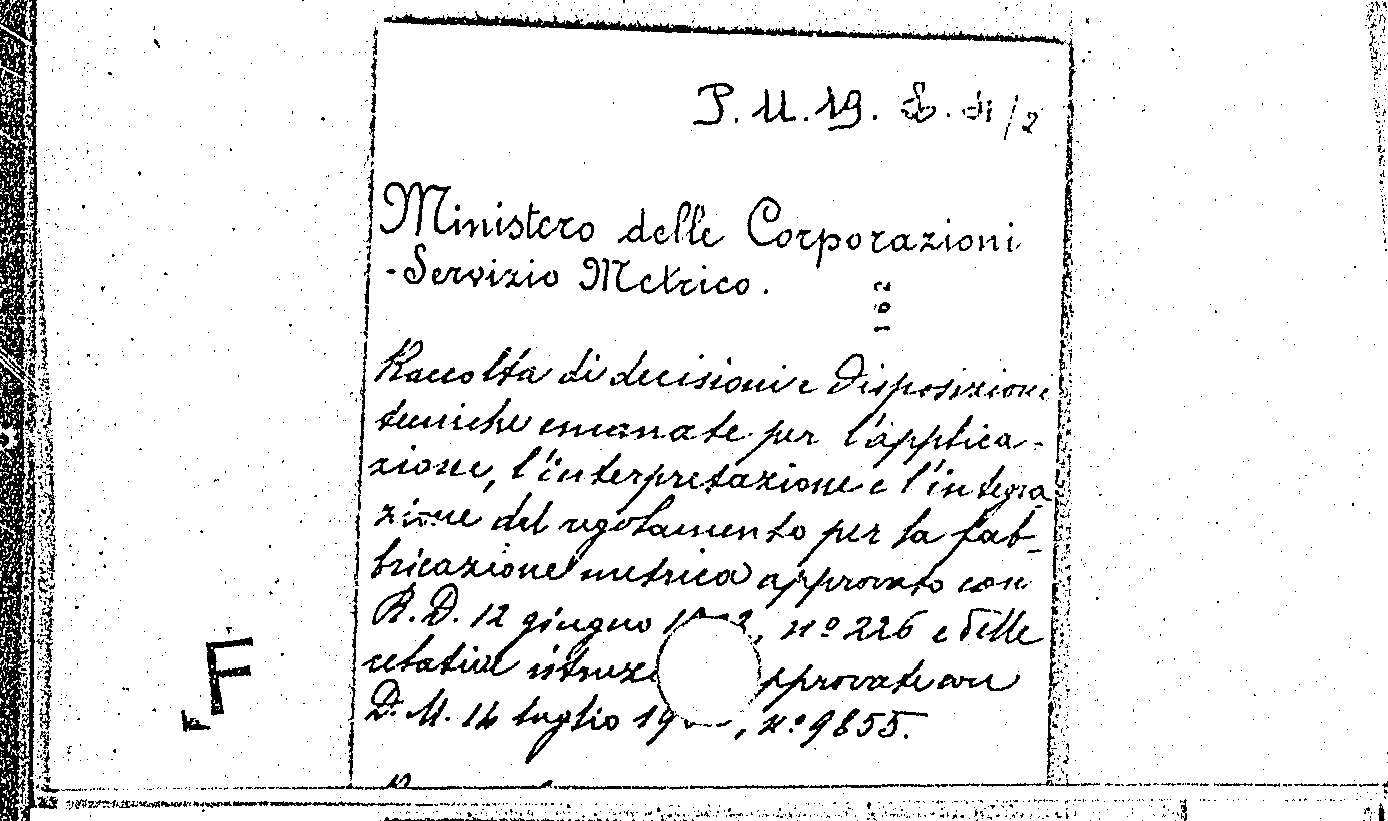 P. U. 19. B. 21/2
Ministero delle Corporazioni
-Servizio Metrico.
102
Raccolta di decisioni e disposizioni
tecniche emanate per l'applica-
zione, l'interpretazione e l'integra
zione del regolamento per la fab-
bricazione metrica approvato con
R. D. 12 giugno, nº 226 e delle
relative approvate con
D. M. 14 luglio, nº 9855.
F